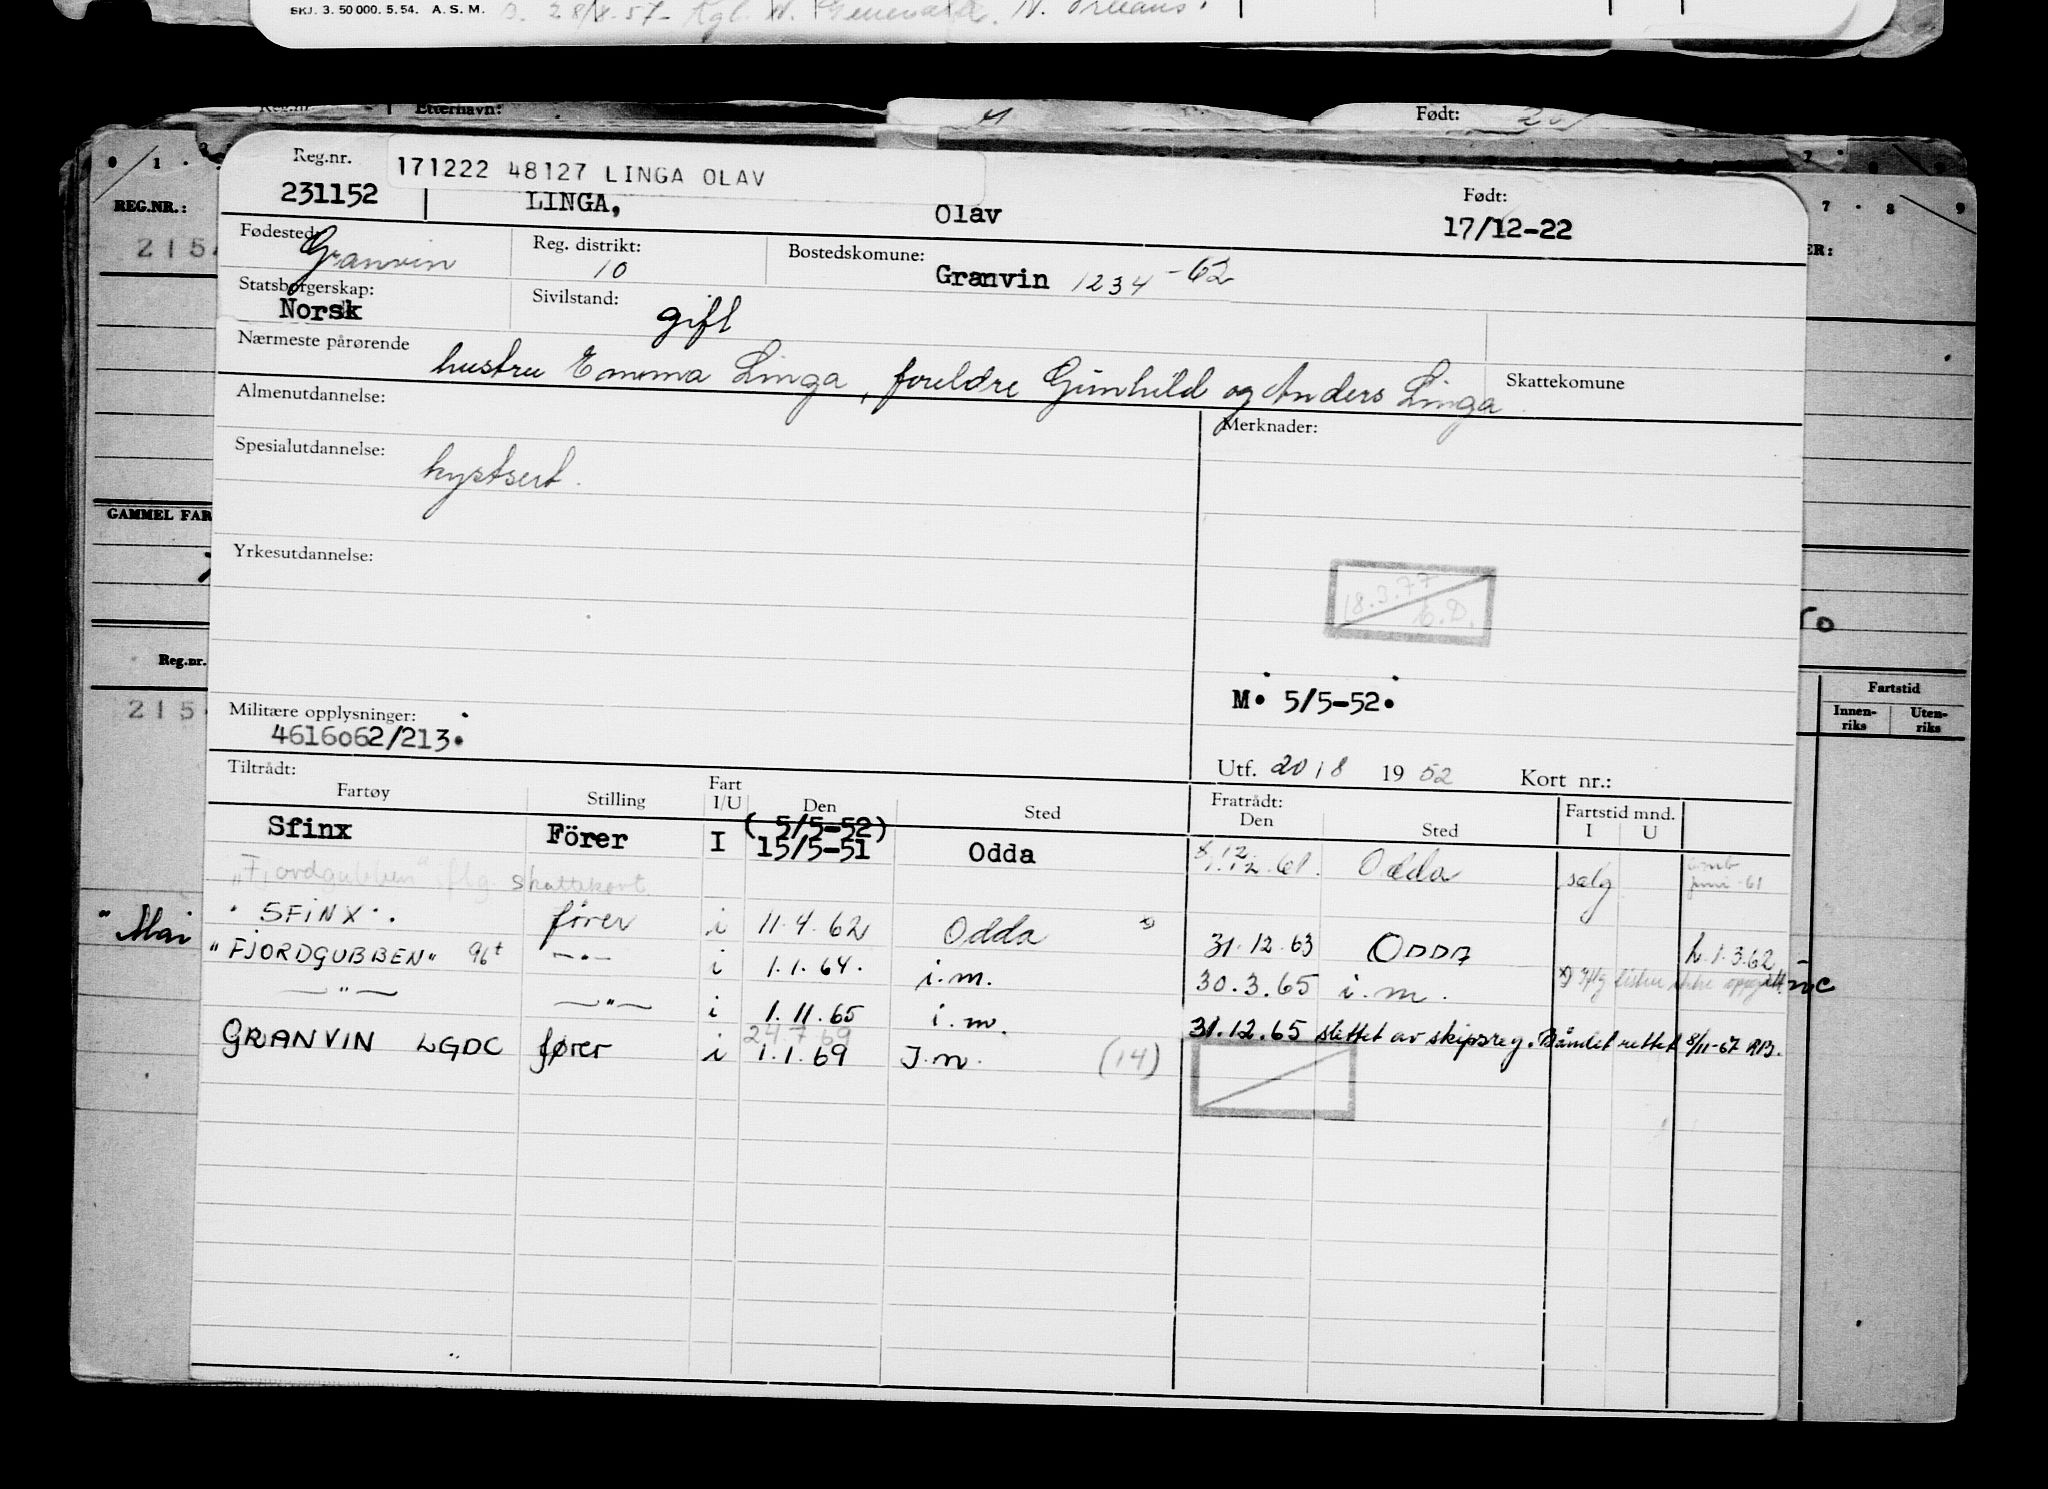 SKJ. 3. 50 000. 5. 54. A. S. M. 28/8-57- Kgl. N. N. Orleans.
Reg.nr. Etternavn: Født:
Reg.nr. 171222 48127 LINGA OLAV Født:
231152 LINGA, Olav 17/12-22
REG.NR.:
Fødested: Granvin Reg. distrikt: 10 Bostedskomune: Granvin 1234 -62
Statsborgerskap: Norsk Sivilstand: gift
Nærmeste pårørende hustru Emma Linga, foreldre Gunhild og Anders Linga Skattekomune
Almenutdannelse: Merknader:
Spesialutdannelse: kystsert.
GAMMEL FAR
Yrkesutdannelse:
18.3.77
Reg.nr. Fartstid
Innen-riks Uten-riks
M. 5/5-52.
Militære opplysninger:
4616062/213.
Utf. 20/8 1952 Kort nr.:
Tiltrådt: Fratrådt:
Fartøy Stilling Fart I/U Den Sted Den Sted Fartstid mnd. I U
(5/5-52)
Sfinx Förer I 15/5-51 Odda 12.61. Odda salg juni-61
"Fjordgubben" iflg. skattekort
"SFINX". fører i 11.4.62 Odda 31.12.63 ODDA 1.3.62
"Mai
"FJORDGUBBEN" 96t -"- i 1.1.64. i.m. 30.3.65 i.m.
-"- -"- i 1.11.65 i.m. 31.12.65 slettet av skipsreg. Båndet rettet 8/11-67 RB.
24.7.69
GRANVIN LGDC fører i 1.1.69 I.m. (14)